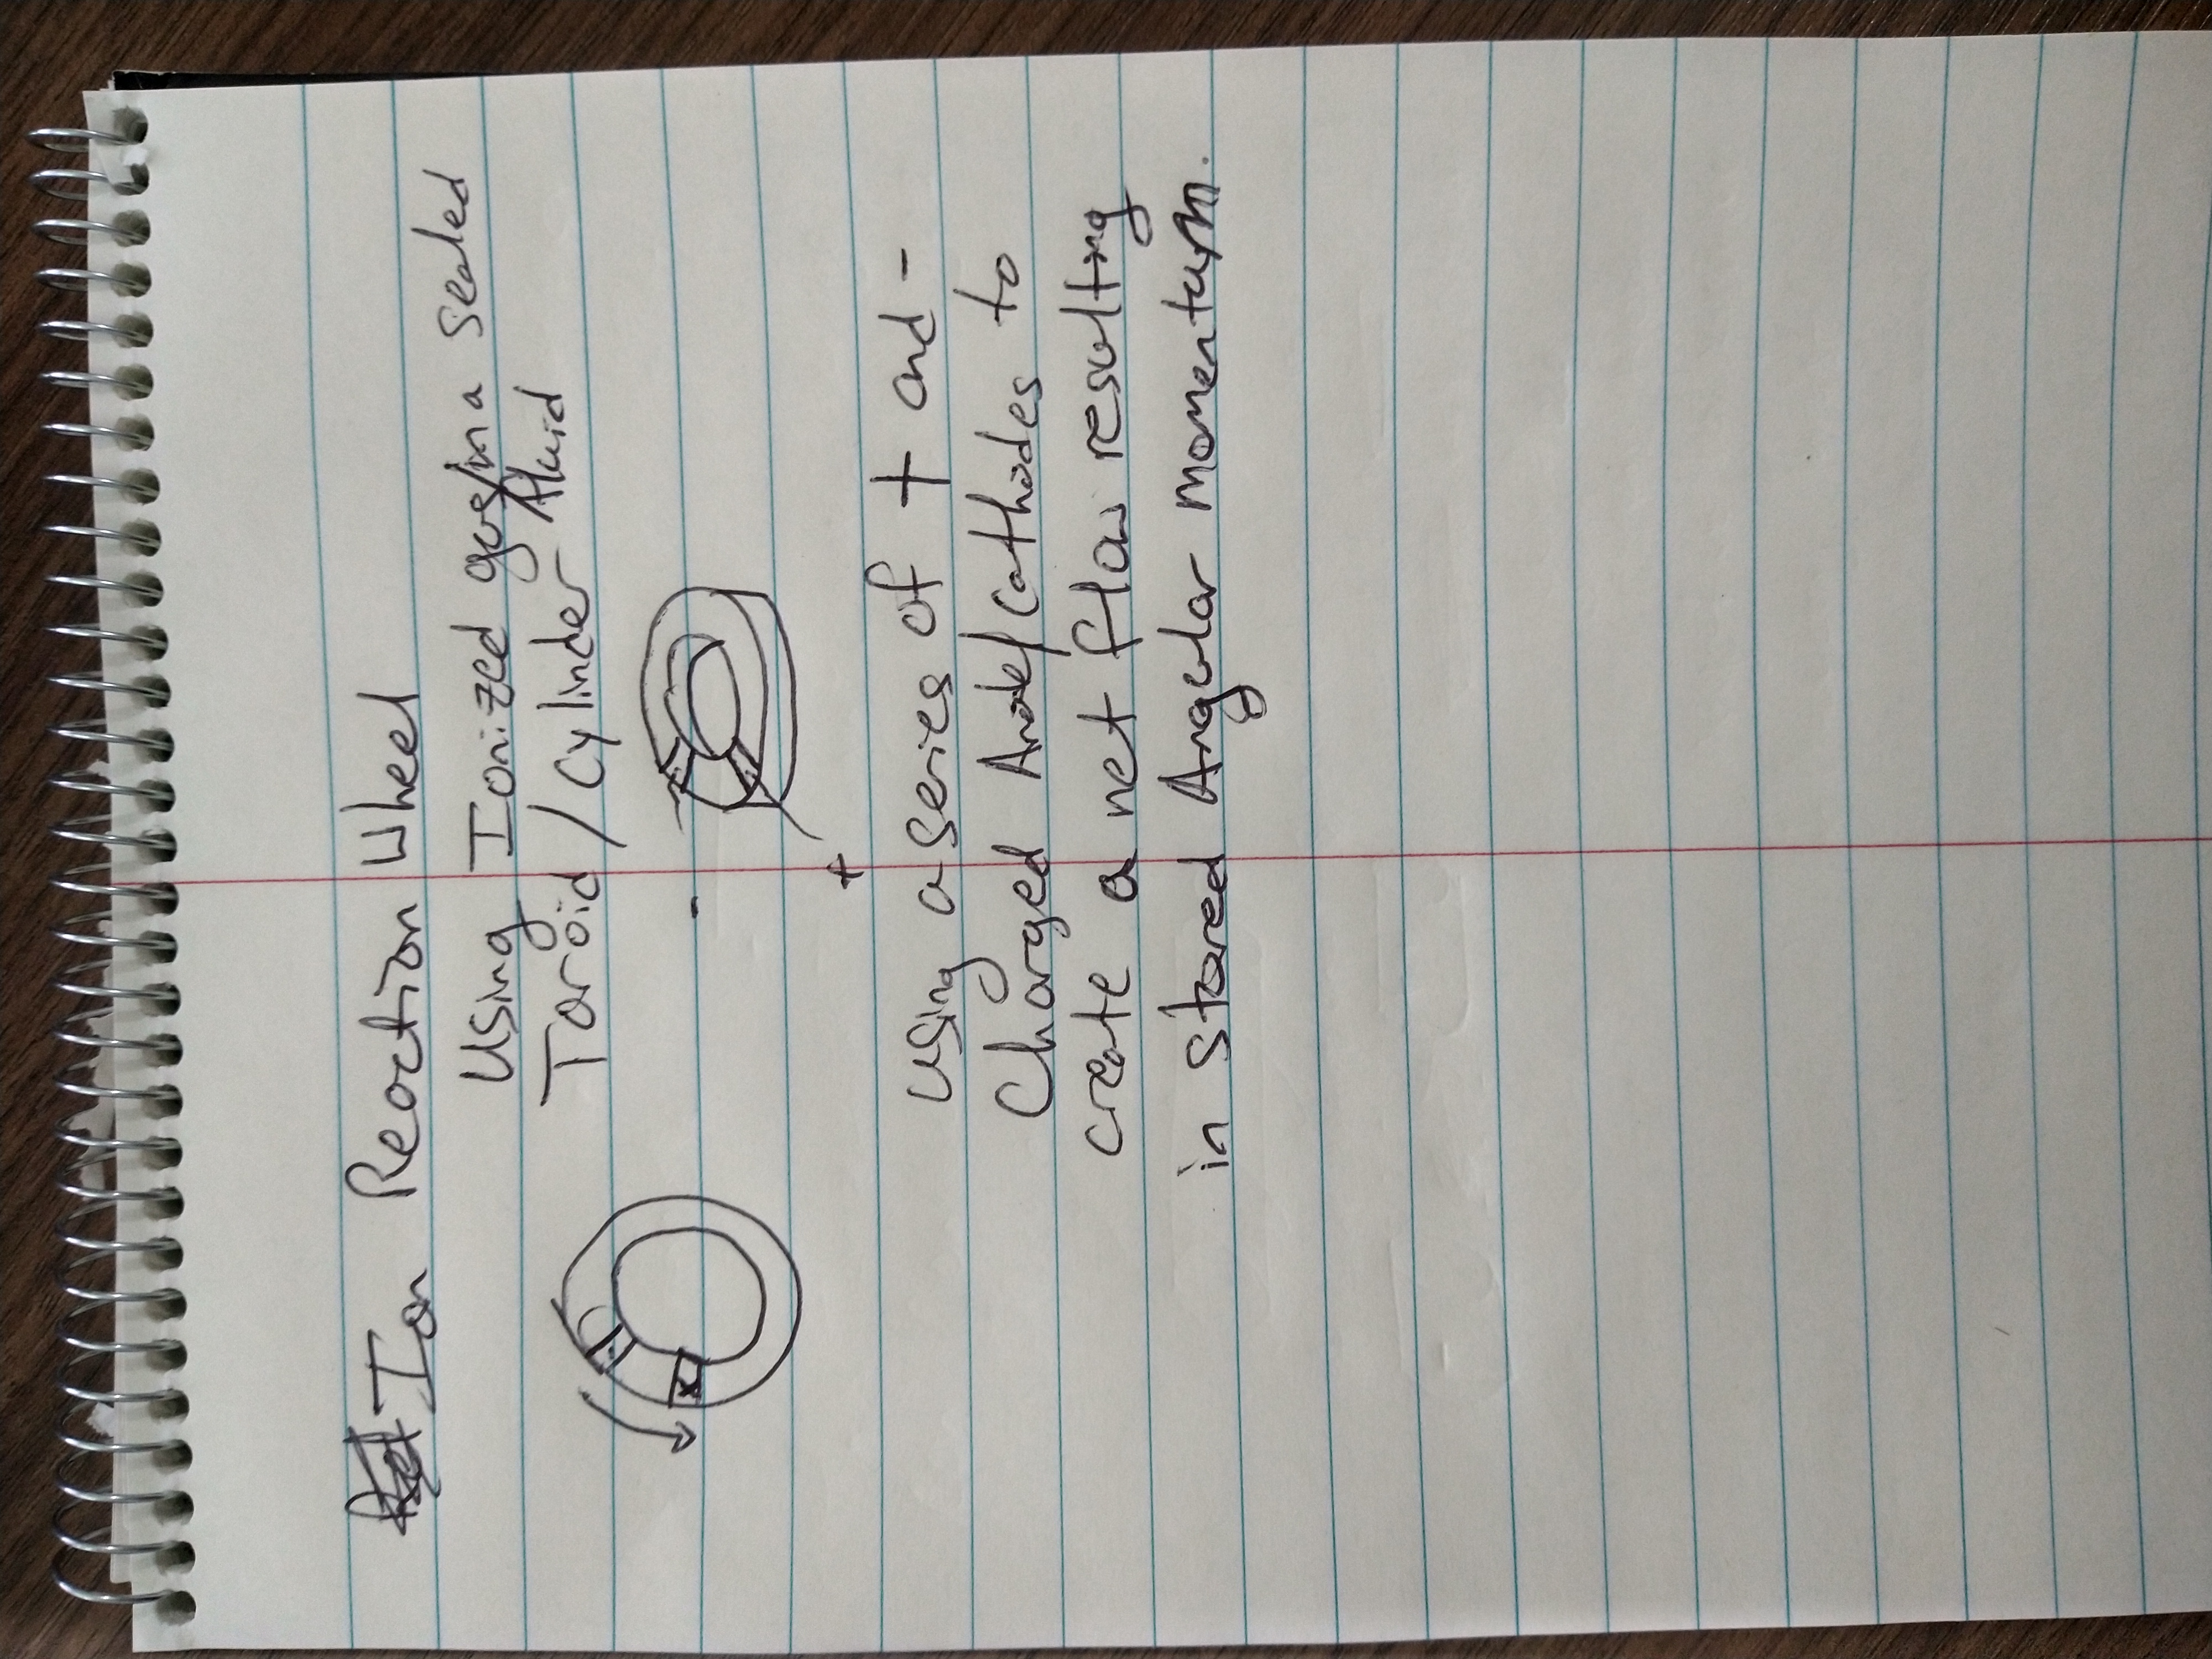 Ion Reaction Wheel
Using Ionized gas/in a sealed
Toroid / Cylinder fluid
-
+
using a series of + and -
Charged Anode/Cathodes to
create a net flow resulting
in stored Angular momentum.